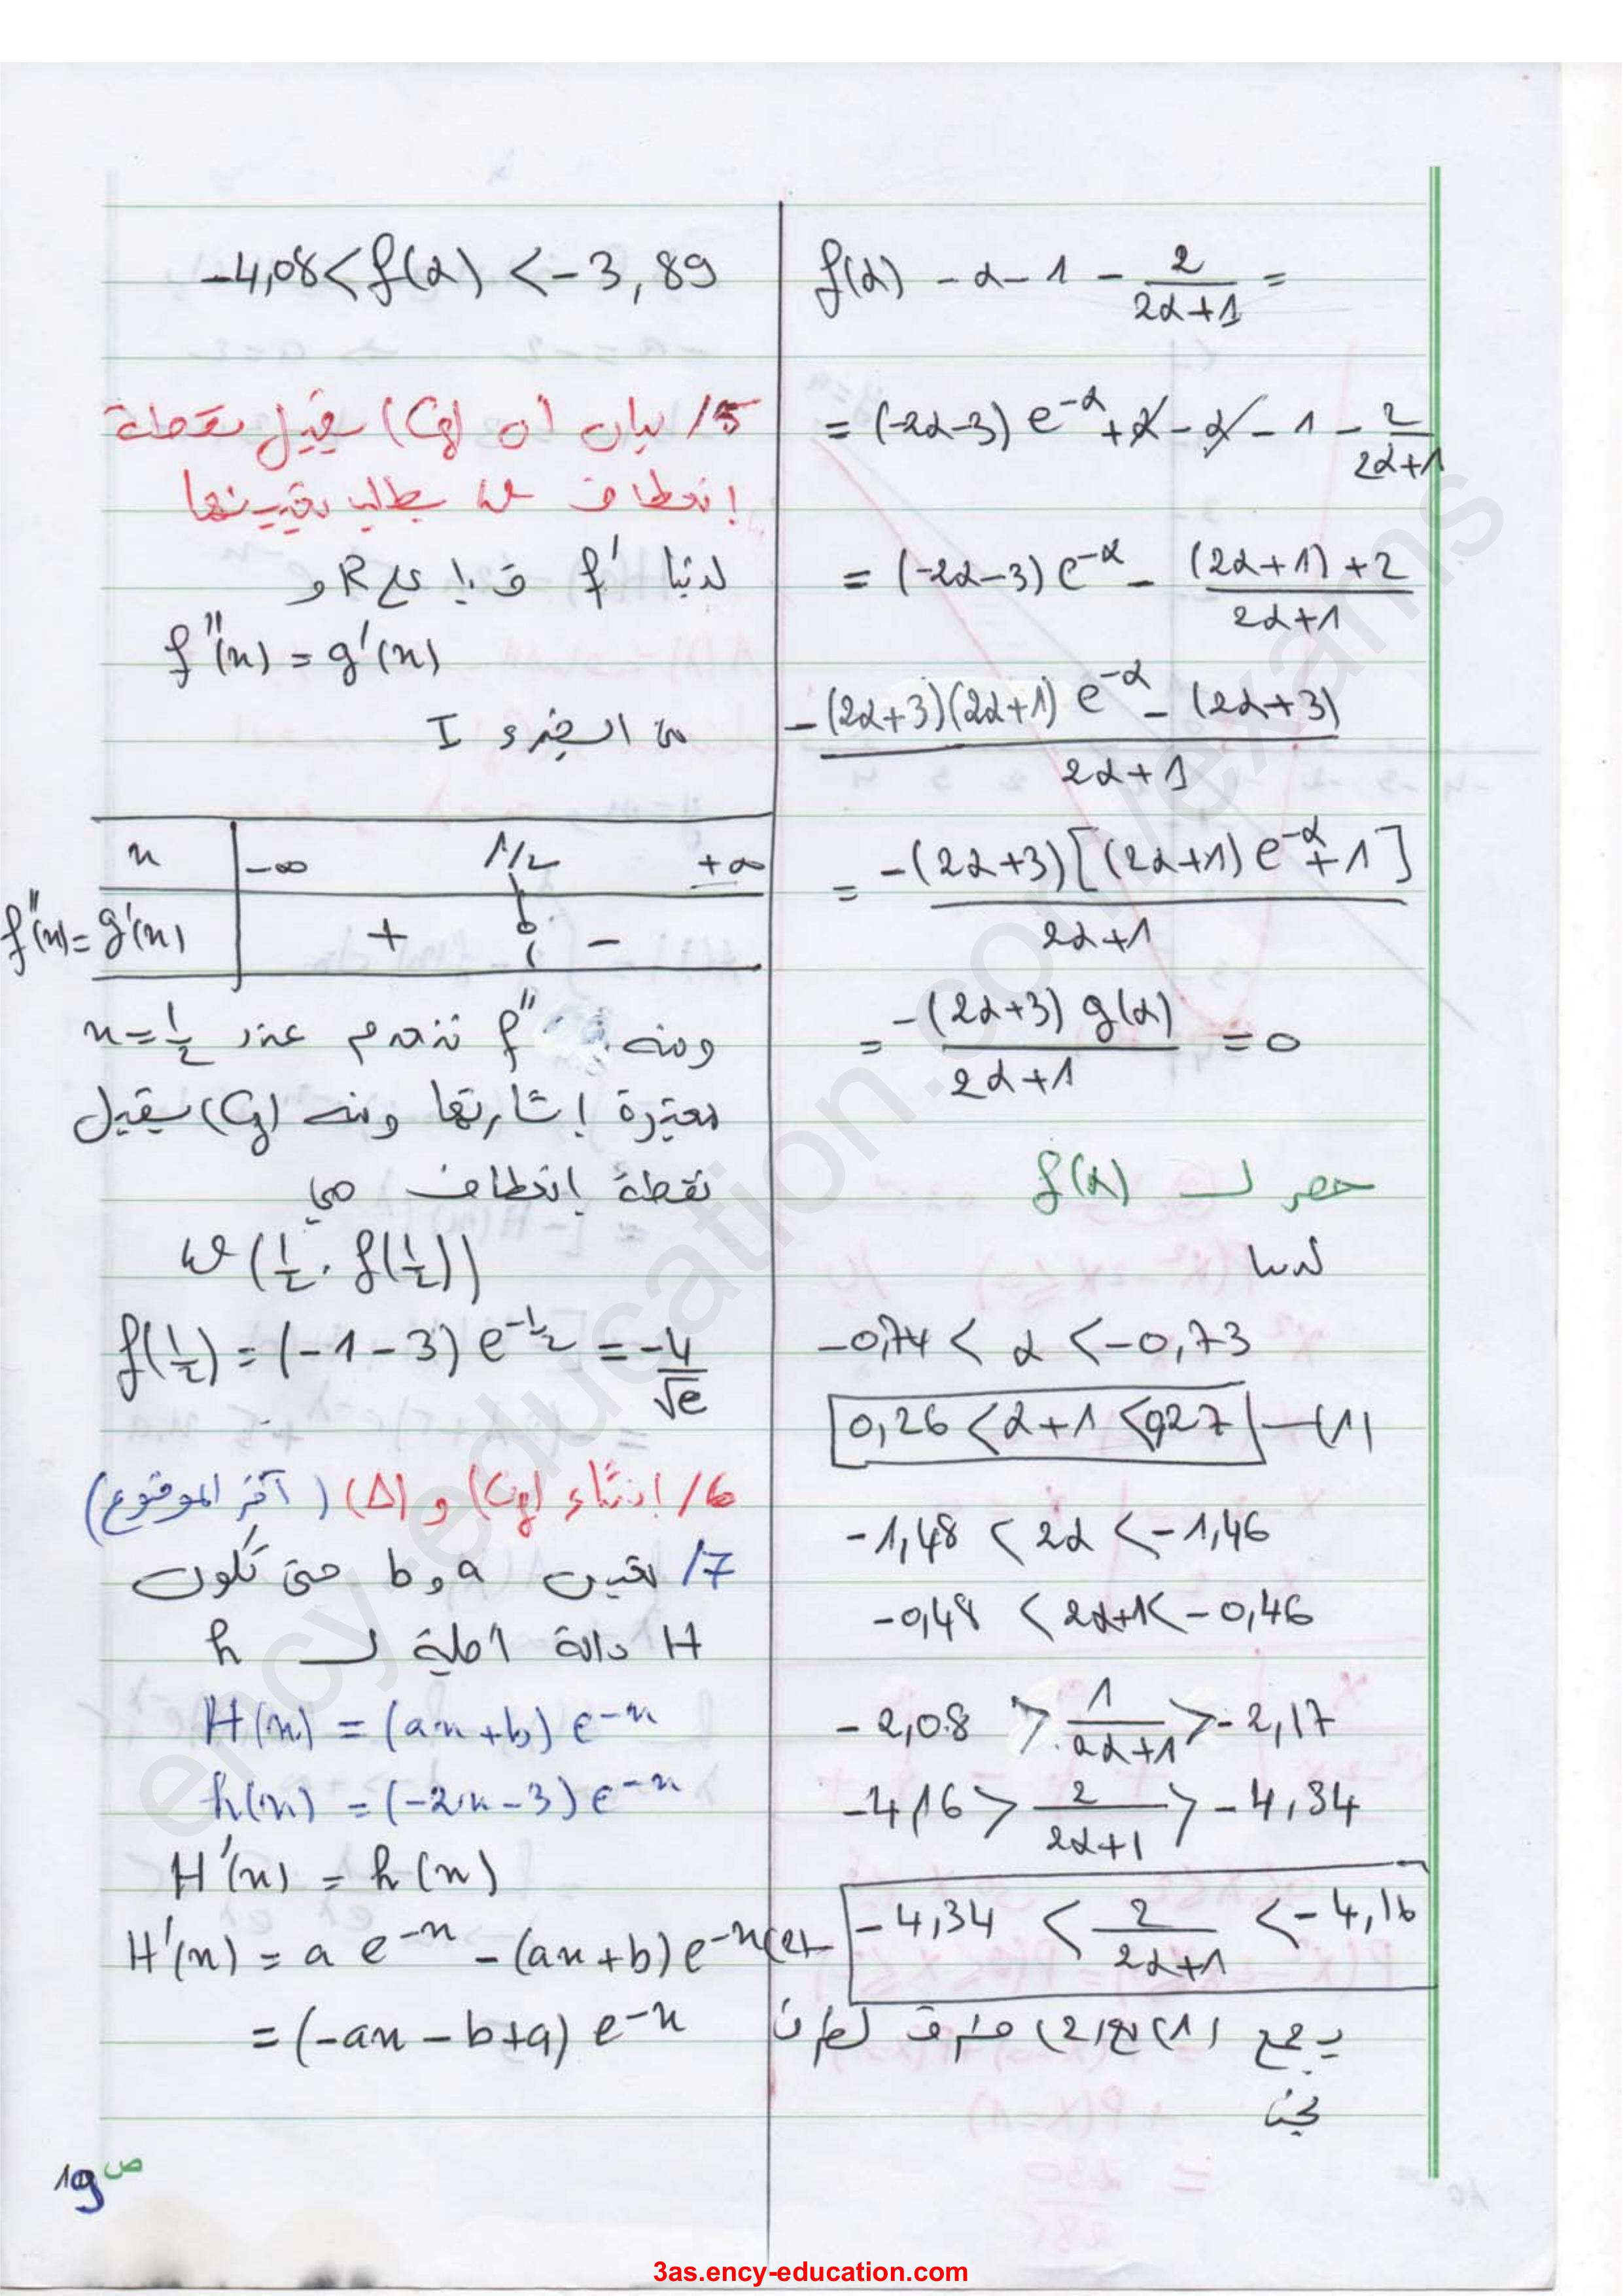 f(α) - α - 1 - 2/(2α+1) =
= (-2α-3) e^{-α} + α - α - 1 - 2/(2α+1)
= (-2α-3) e^{-α} - ((2α+1)+2)/(2α+1)
(-(2α+3)(2α+1) e^{-α} - (2α+3))/(2α+1)
= (-(2α+3)[(2α+1) e^{-α} + 1])/(2α+1)
= (-(2α+3) g(α))/(2α+1) = 0
حصر لـ f(α)
لدينا
-0,74 < α < -0,73
0,26 < α+1 < 0,27 —(1)
-1,48 < 2α < -1,46
-0,48 < 2α+1 < -0,46
-2,08 > 1/(2α+1) > -2,17
-4,16 > 2/(2α+1) > -4,34
(2)— -4,34 < 2/(2α+1) < -4,16
بجمع (1) مع (2) طرف لطرف
نجد
-4,08 < f(α) < -3,89
5/ بيان أن (Cf) يقبل نقطة
إنعطاف يطلب تعيينها
لدينا f' ق.إ على R و
f''(x) = g'(x)
من الجزء I
x -∞ 1/2 +∞
f''(x) = g'(x) + 0 -
ومنه f'' تنعدم عند x = 1/2
مغيرة إشارتها ومنه (Cf) يقبل
نقطة إنعطاف هي
ω(1/2 . f(1/2))
f(1/2) = (-1-3) e^{-1/2} = -4/√e
6/ إنشاء (Cf) و (Δ) (آخر الموضوع)
7/ تعيين a و b حتى تكون
H دالة أصلية لـ h
H(x) = (ax+b) e^{-x}
h(x) = (-2x-3) e^{-x}
H'(x) = h(x)
H'(x) = a e^{-x} - (ax+b) e^{-x}
= (-ax - b+a) e^{-x}
ص 19
ency-education.com/exams
3as.ency-education.com